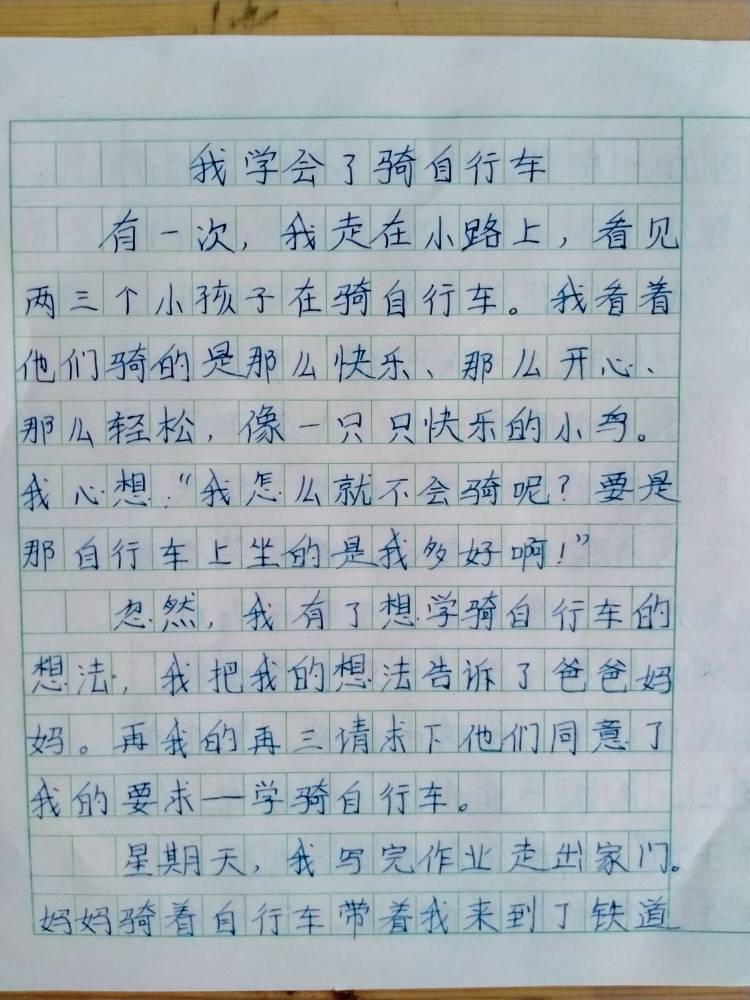 我学会了骑自行车
有一次，我走在小路上，看见
两三个小孩子在骑自行车。我看着
他们骑的是那么快乐、那么开心、
那么轻松，像一只只快乐的小鸟。
我心想：“我怎么就不会骑呢？要是
那自行车上坐的是我多好啊！”
忽然，我有了想学骑自行车的
想法，我把我的想法告诉了爸爸妈
妈。再我的再三请求下他们同意了
我的要求——学骑自行车。
星期天，我写完作业走出家门。
妈妈骑着自行车带着我来到了铁道